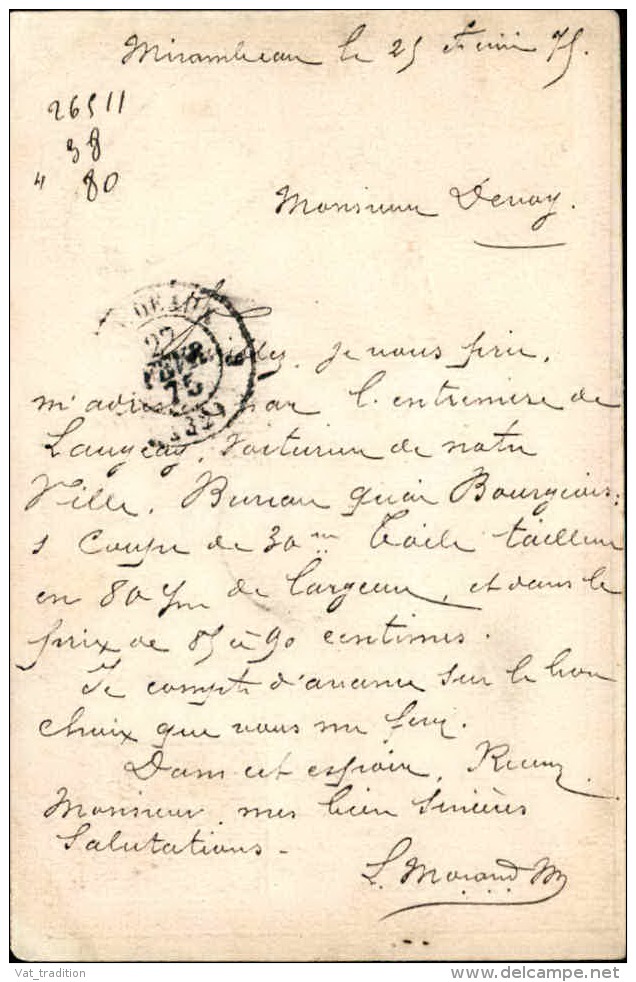 Mirambeau le 25 Février 75.
26511
38
" 80
Monsieur Denoy.
Veuillez, je vous prie,
m'adresser par l'entremise de
Laugeay, voiturier de notre
Ville, Bureau quai Bourgeois:
1 Coupe de 30 m Toile tailleur
en 80 c/m de largeur, et dans le
prix de 85 à 90 centimes.
Je compte d'avance sur le bon
choix que vous me ferez.
Dans cet espoir, Recevez
Monsieur, mes bien sincères
Salutations -
L. Morand
27
FEVR
75
Vat_tradition
delcampe.net